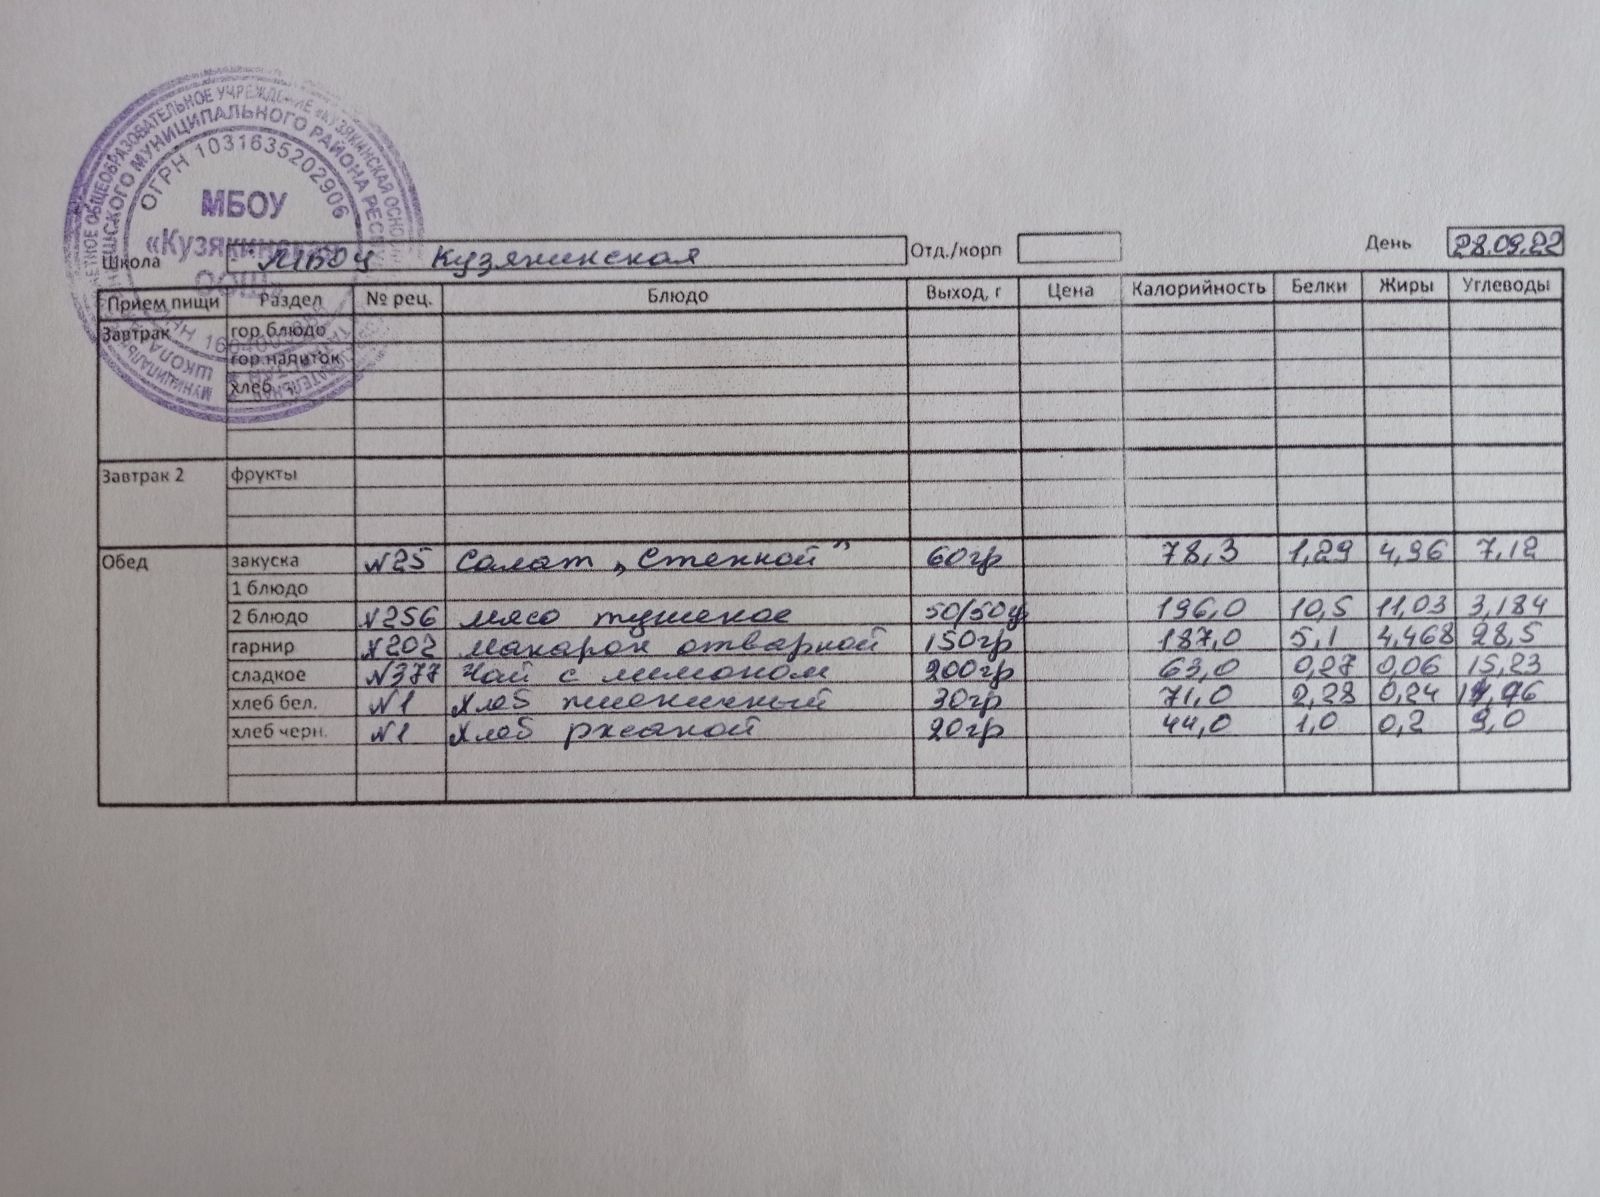 МБОУ
«Кузякинская
ООШ»
ОГРН 1031635202906
Школа МБОУ Кузякинская Отд./корп День 28.09.22
Прием пищи Раздел № рец. Блюдо Выход, г Цена Калорийность Белки Жиры Углеводы
Завтрак гор.блюдо
гор.напиток
хлеб
Завтрак 2 фрукты
Обед закуска №25 Салат „Степной" 60гр 78,3 1,29 4,96 7,12
1 блюдо
2 блюдо №256 мясо тушеное 50/50 196,0 10,5 11,03 3,184
гарнир №202 макарон отварной 150гр 187,0 5,1 4,468 28,5
сладкое №377 Чай с лимоном 200гр 63,0 0,27 0,06 15,23
хлеб бел. №1 Хлеб пшеничный 30гр 71,0 2,28 0,24 14,96
хлеб черн. №1 Хлеб ржаной 20гр 44,0 1,0 0,2 9,0